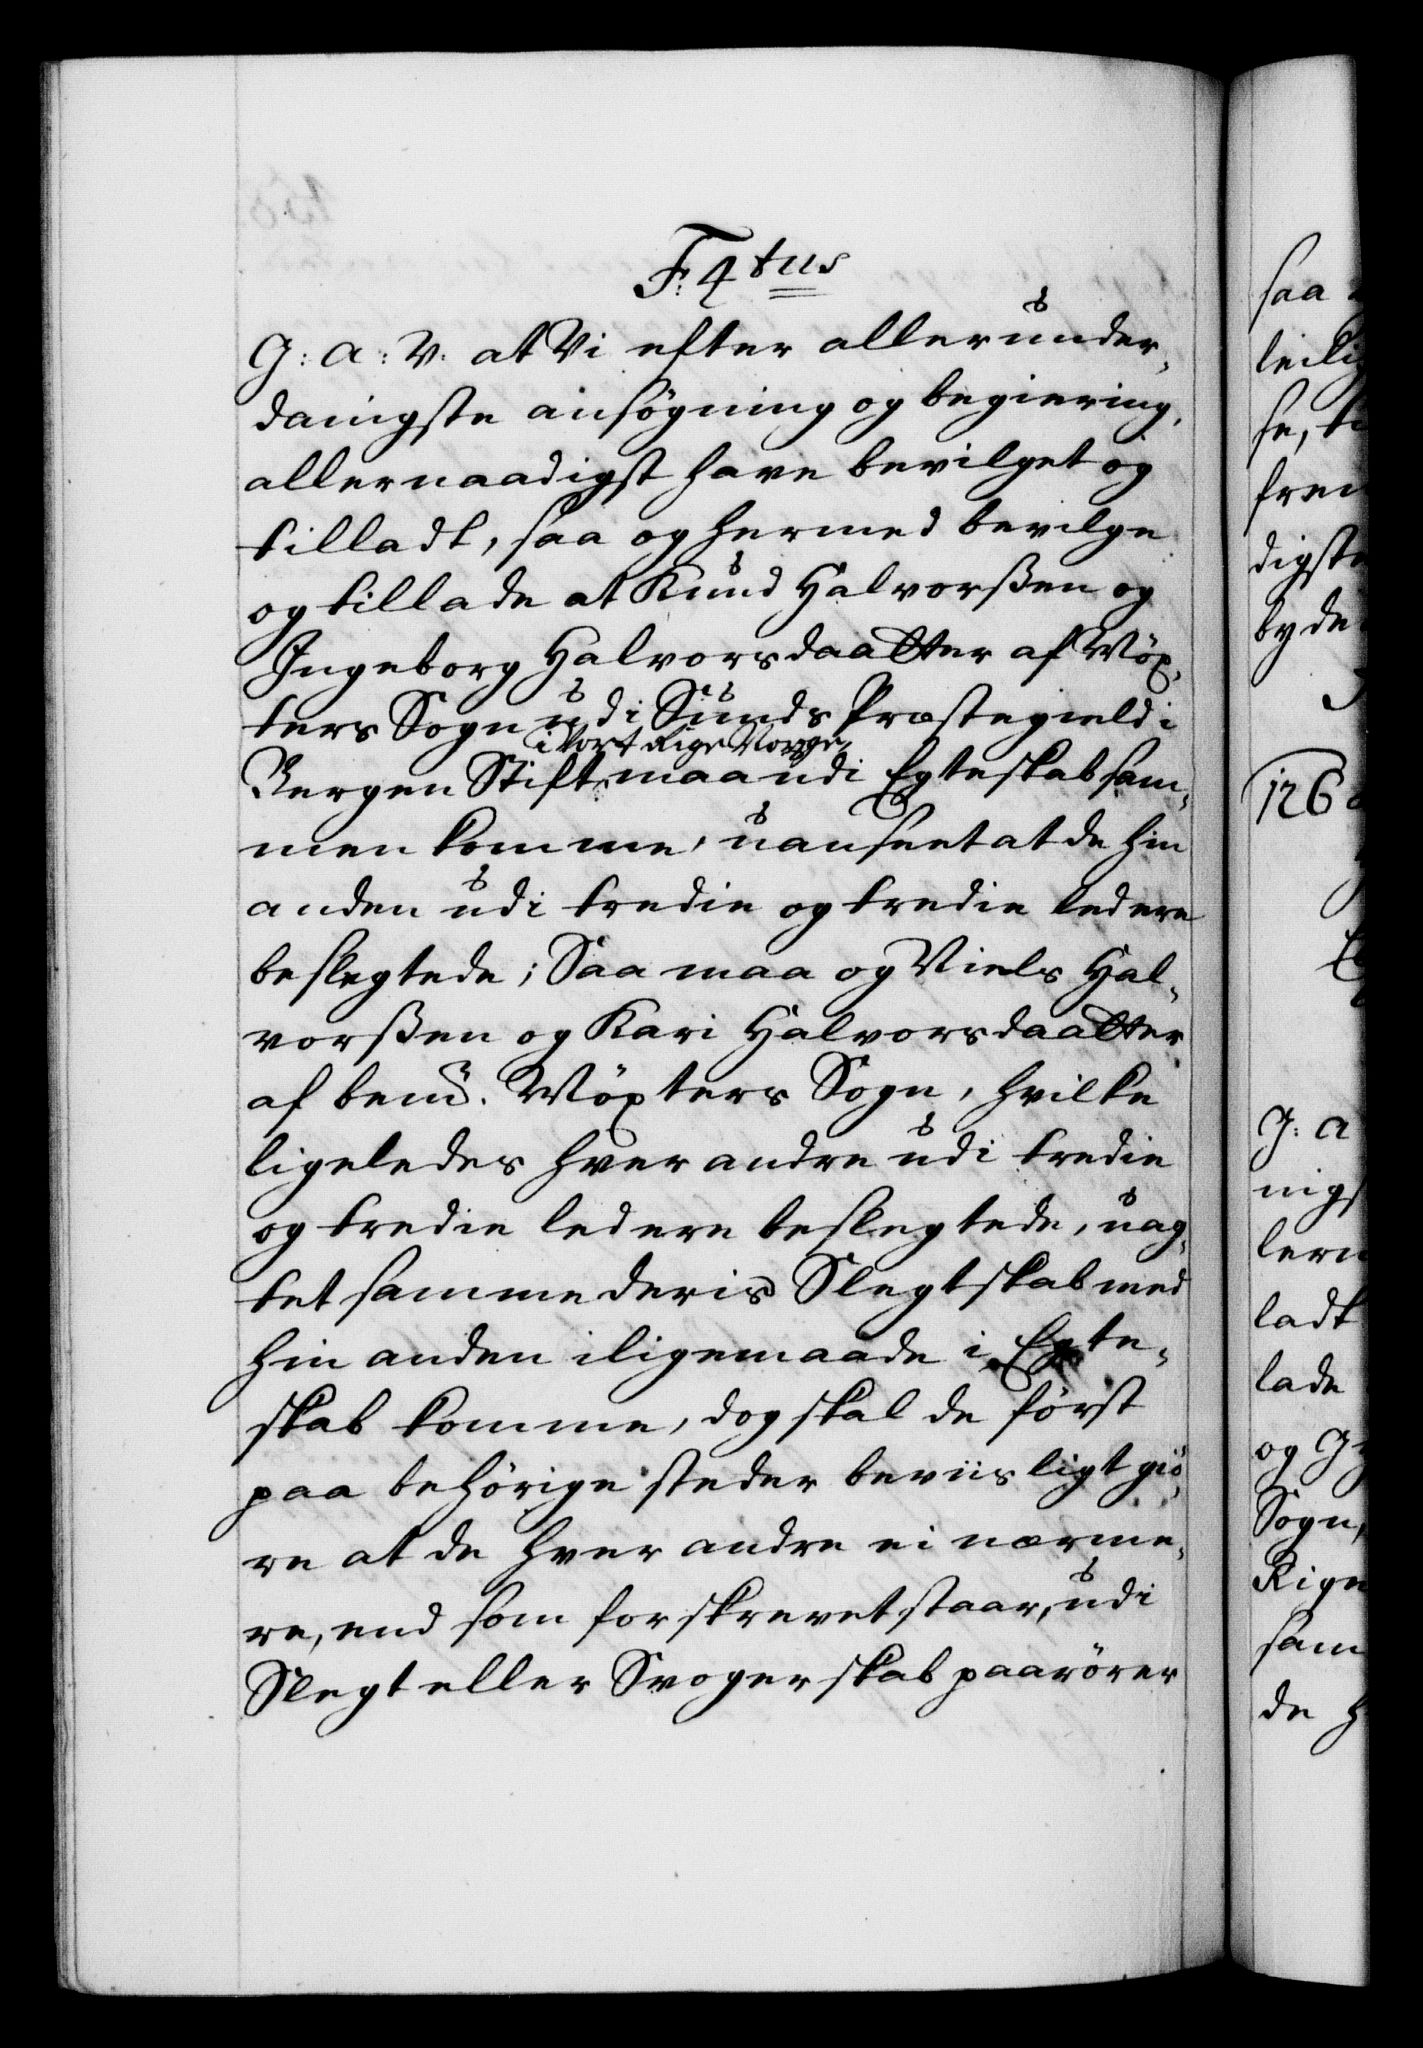 F: 4tus
G: A: V: at Vi efter allerunder,
danigste ansøgning og begiering,
allernaadigst have bevilget og
tilladt, saa og hermed bevilge
og tillade at Knud Halvorßen og
Ingeborg Halvorsdaatter af Wöx,
ters Sogn udi Sunds Præstegield i
i Vort Rige Norge,
Bergen Stift, maa udi Egteskab sam,
men komme, uanseet at de hin
anden udi tredie og tredie leed ere
beslegtede; Saa maa og Niels Hal,
vorßen og Kari Halvorsdaatter
af bemt. Wöxters Sogn, hvilke
ligeledes hver andre udi tredie
og tredie led ere beslegtede, uag,
tet samme deris Slegtskab med
hin anden i ligemaade i Egte,
skab komme, dog skal de först
paa behörige steder beviisligt giö,
re at de hver andre ei nærme,
re, end som forskrevet staar, udi
Slegt eller Svogerskab paarörer
saa
leilig
se, ti
frem
digste
byde
126
G: A
nigs
lern
ladt
lade
og G
Sogn,
Rige
sam
de h